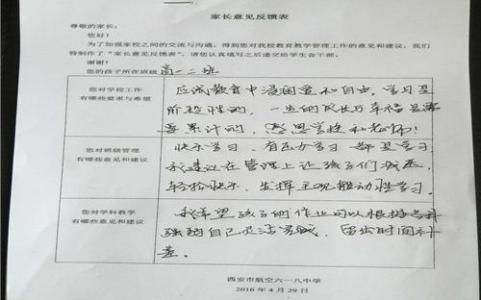 家长意见反馈表
尊敬的家长：
您好！
为了加强家校之间的交流与沟通，得到您对我校教育教学管理工作的意见和建议，我们
特制作了“家长意见反馈表”，请您认真填写之后递交给学生会干部。
谢谢！
您的孩子所在班级 高一二班
您对学校工作
有哪些要求与希望
应试教育中浸润着和自由，学习是
阶段性的，一生的成长与幸福是需
要累计的，感恩学校和老师！
您对班级管理
有哪些意见和建议
快乐学习，有压力学习都是学习
我建议在管理上让孩子们减压，
轻松快乐，发挥主观能动性学习。
您对学科教学
有哪些意见和建议
我希望孩子们作业可以根据
强弱自己灵活完成，留出时间补
差。
西安市航空六一八中学
2016 年 4 月 29 日